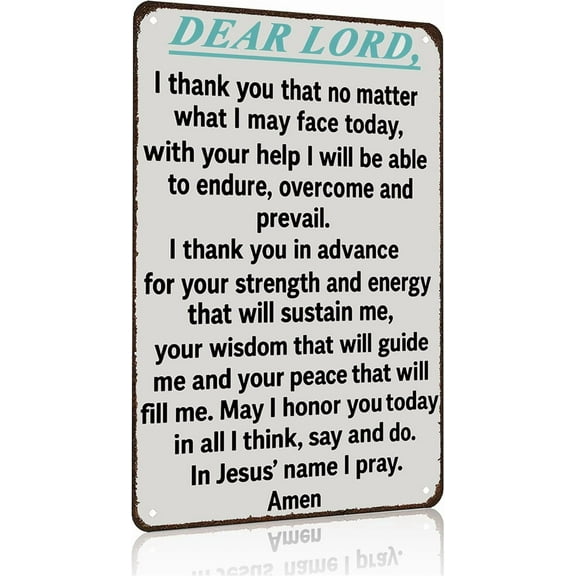 DEAR LORD,
I thank you that no matter
what I may face today,
with your help I will be able
to endure, overcome and
prevail.
I thank you in advance
for your strength and energy
that will sustain me,
your wisdom that will guide
me and your peace that will
fill me. May I honor you today
in all I think, say and do.
In Jesus' name I pray.
Amen